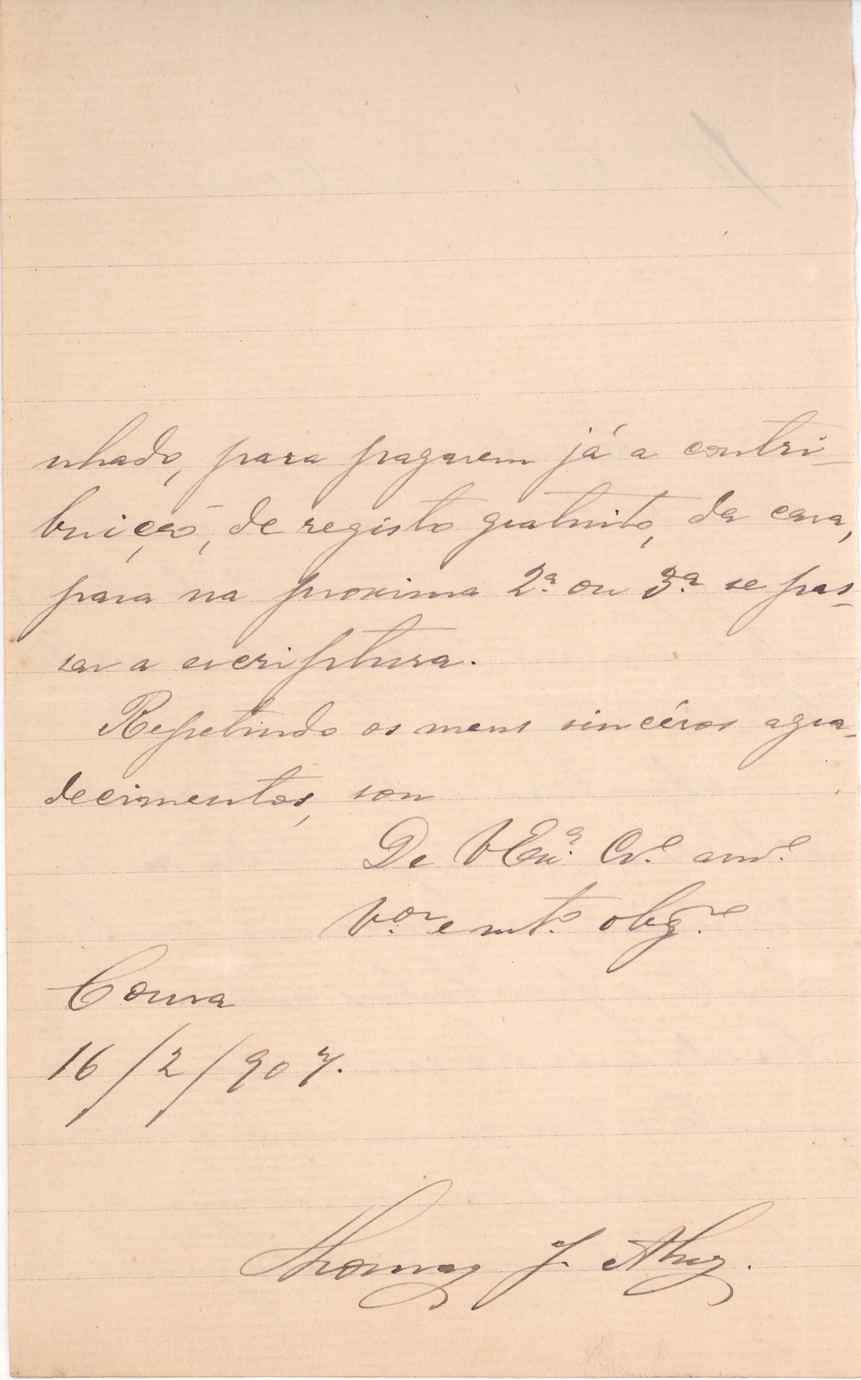 nhado, para pagarem já a contri-
buição, de registo gratuito, da casa,
para na proxima 2ª ou 3ª se pas-
sar a escriptura.
Repetindo os meus sincéros agra-
decimentos, sou
De V Exª Crº amº
Vºr e mtº obgº
Coura
16/2/907.
Thomaz J. Alvz.